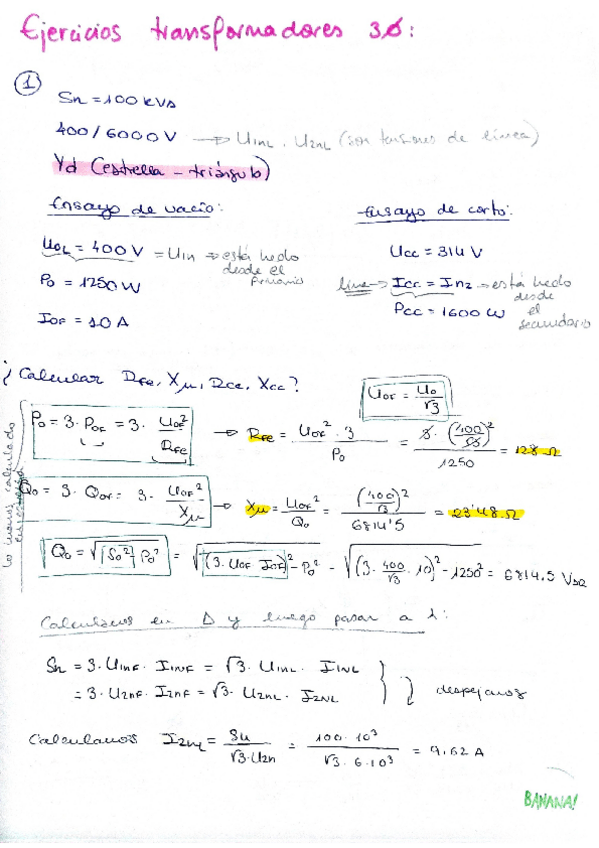 Ejercicios transformadores 3Ø:
①
Sn = 100 kVA
400/6000 V → U1NL . U2NL (son tensiones de línea)
Yd (estrella - triángulo)
Ensayo de vacío:
UoL = 400 V = U1n ⇒ está hecho desde el primario
Po = 1250 W
IoF = 10 A
Ensayo de corto:
Ucc = 314 V
línea → Icc = In2 → está hecho desde el secundario
Pcc = 1600 W
¿Calcular Rfe, Xμ, Rcc, Xcc?
UoF = Uo/√3
lo hemos calculado en estrella
Po = 3·PoF = 3· UoF²/Rfe → Rfe = UoF²·3/Po = 3·(400/√3)²/1250 = 128 Ω
Qo = 3·QoF = 3· UoF²/Xμ → Xμ = UoF²/Qo = (400/√3)²/6814'5 = 23'48 Ω
Qo = √(So² - Po²) = √((3·UoF·IoF)² - Po²) = √((3·400/√3·10)² - 1250²) = 6814.5 VAR
Calculamos en Δ y luego pasar a λ:
Sn = 3·U1nF·I1NF = √3·U1NL·I1NL
= 3·U2nF·I2nF = √3·U2NL·I2NL } despejamos
Calculamos I2NL = Sn/√3·U2n = 100·10³/√3·6·10³ = 9,62 A
BANANA!